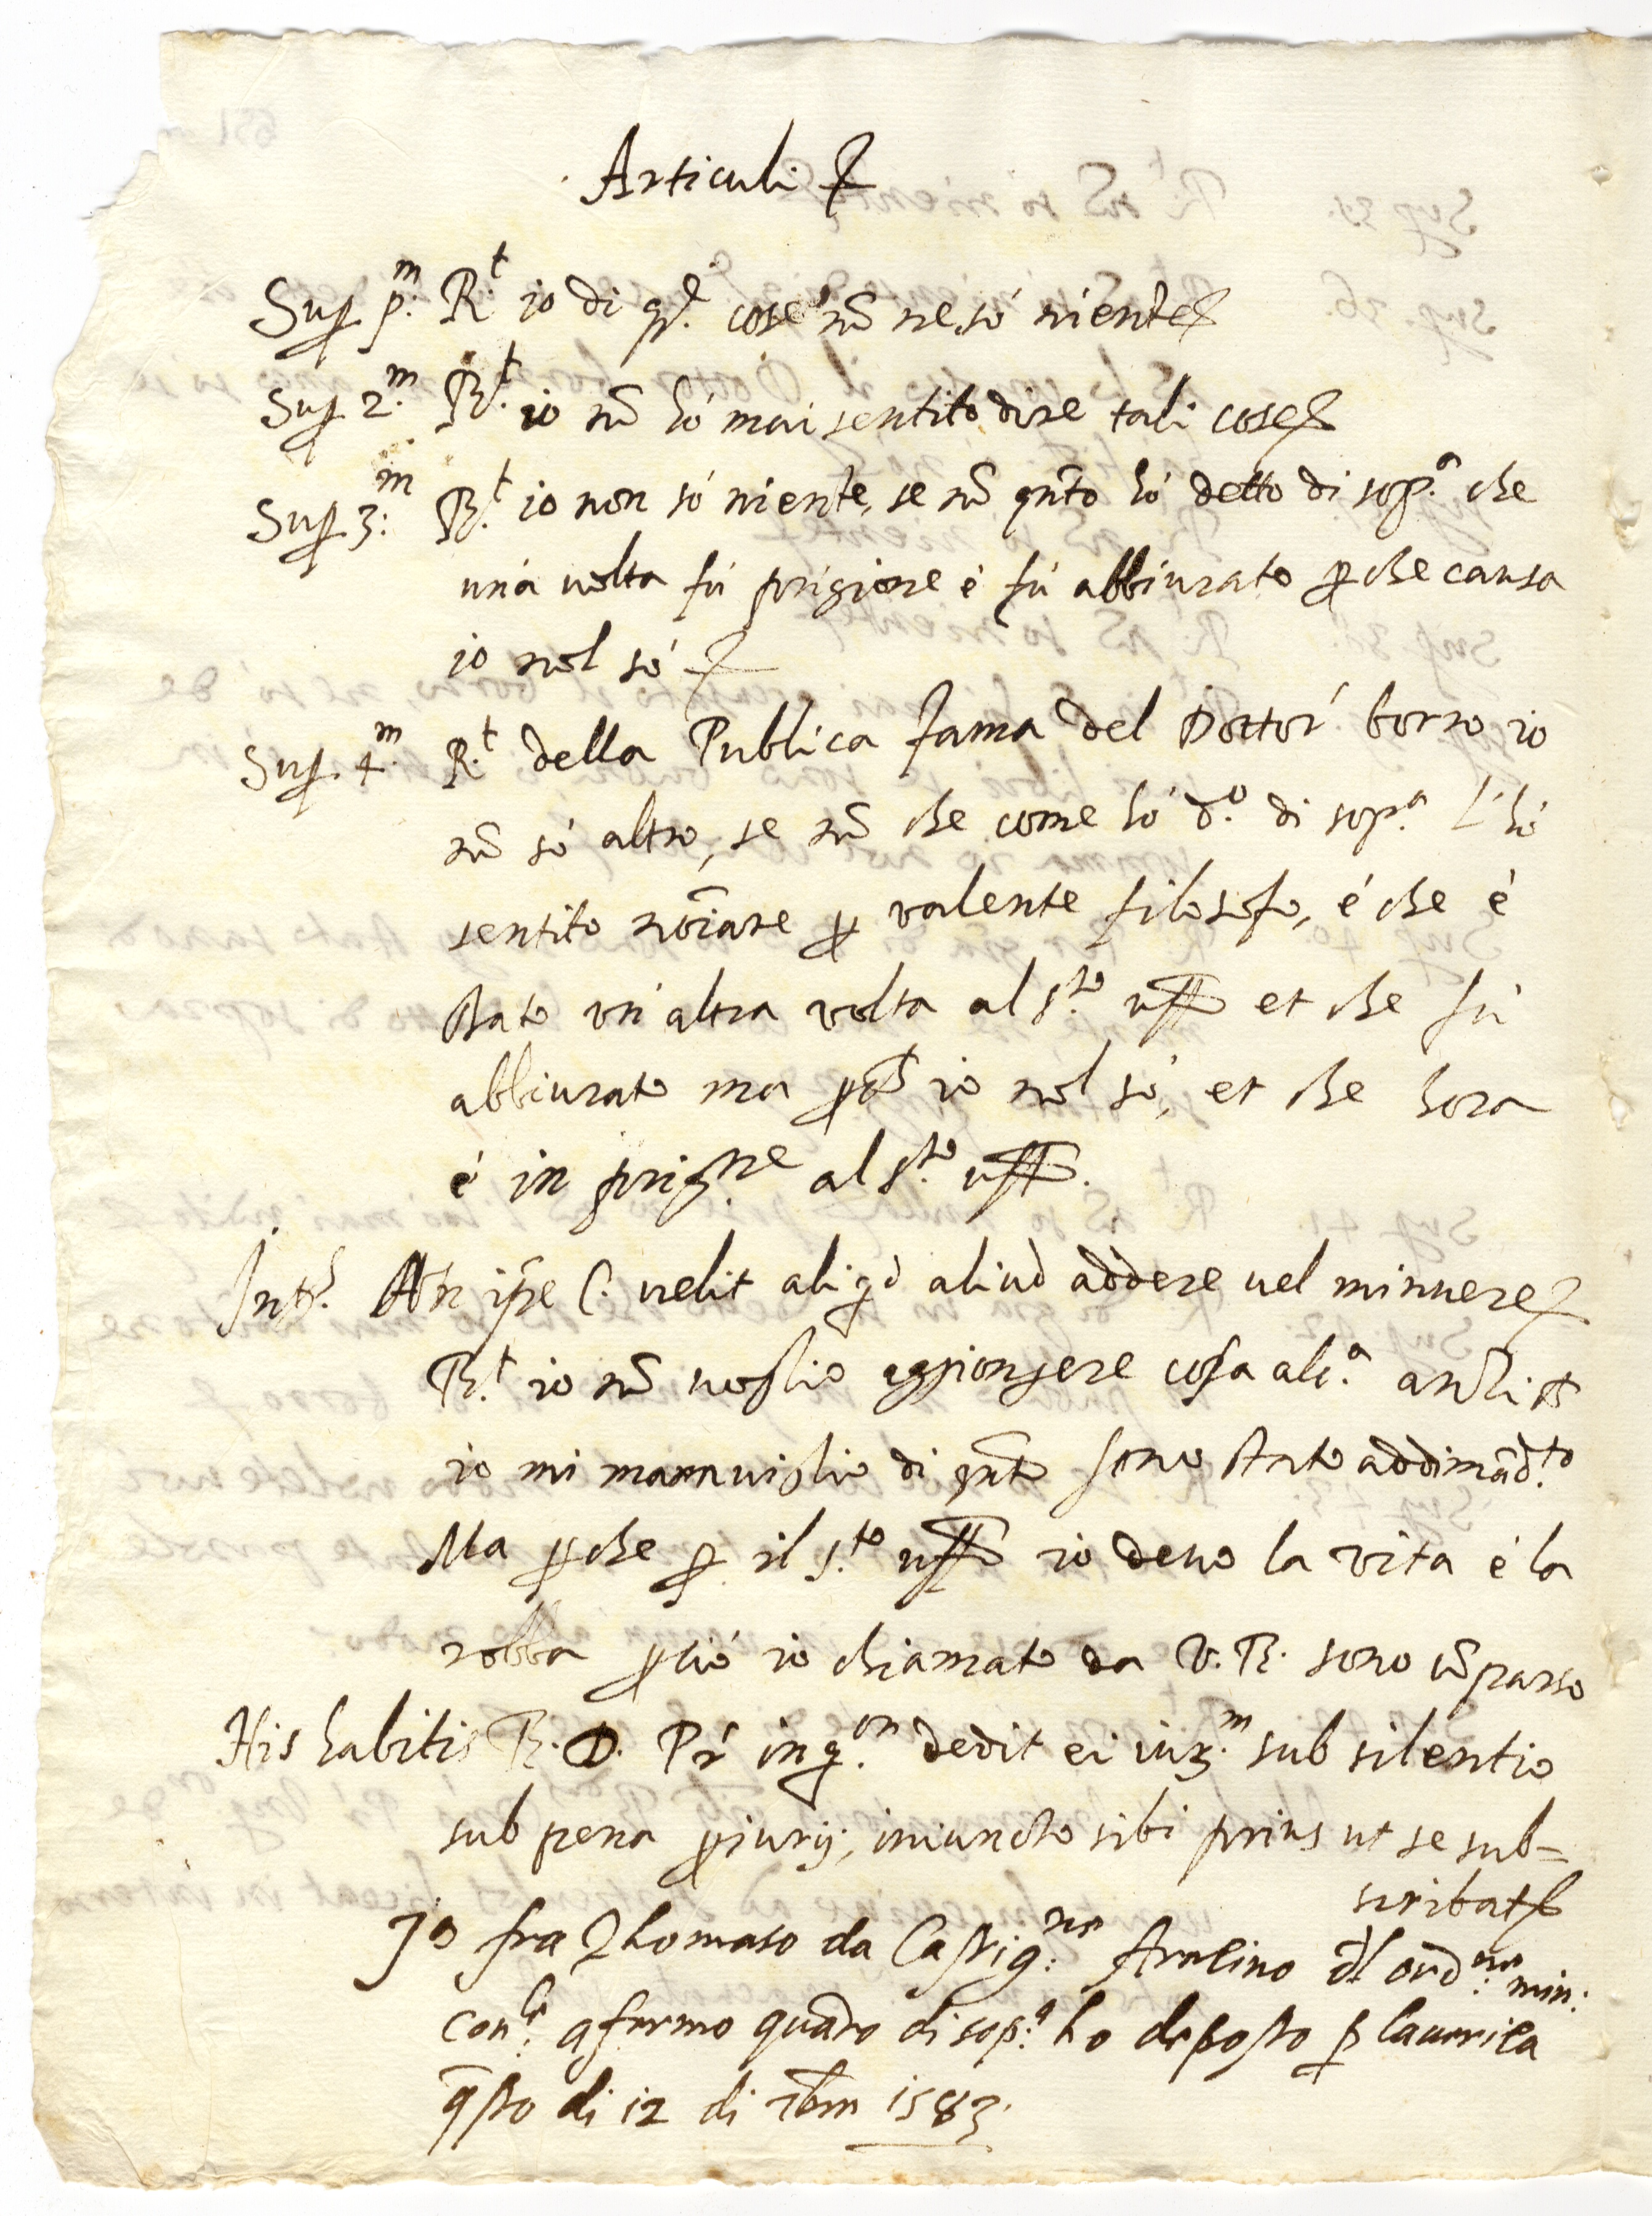 Articuli
Sup. p.m R.t io di q.e cose nō ne só niente
Sup. 2.m R.t io nō hó mai sentito dire tali cose
Sup. 3.m R.t io non só niente, se nō qn̄to hó detto di sop.a che
una uolta fú prigione é fú abbiurato p che causa
io nol só
Sup. 4.m R.t della Publica fama del Dottor borro io
nō só altro, se nō che come hó d.o di sop.a l'hó
sentito noīare p valente filosofo, é che é
stato un'altra volta al s.to uff.o et che fú
abbiurato ma pch io nol só, et che hora
é in prig.ne al s.to uff.o
Int.s An ip̄e C. uelit aliqd aliud addere uel minuere
R.t io nō uoglio aggiongere cosa alc.a anzi
io mi marauiglio di qn̄to sono stato addimād.to
Ma p che p il s.to uff.o io deuo la vita é la
robba pció io chiamato da V. R. sono cōparso
His habitis R. D. Pr inq.or dedit ei iur.m sub silentio
sub pena piurij, iniuncto sibi prius ut se sub=
scribat
Io fra Thomaso da Castig.ne Aretino dl ord.ne min:
con.li afermo quāto di sop.a ho deposto p la uerita
q̄sto di 12 di 7bre 1583.